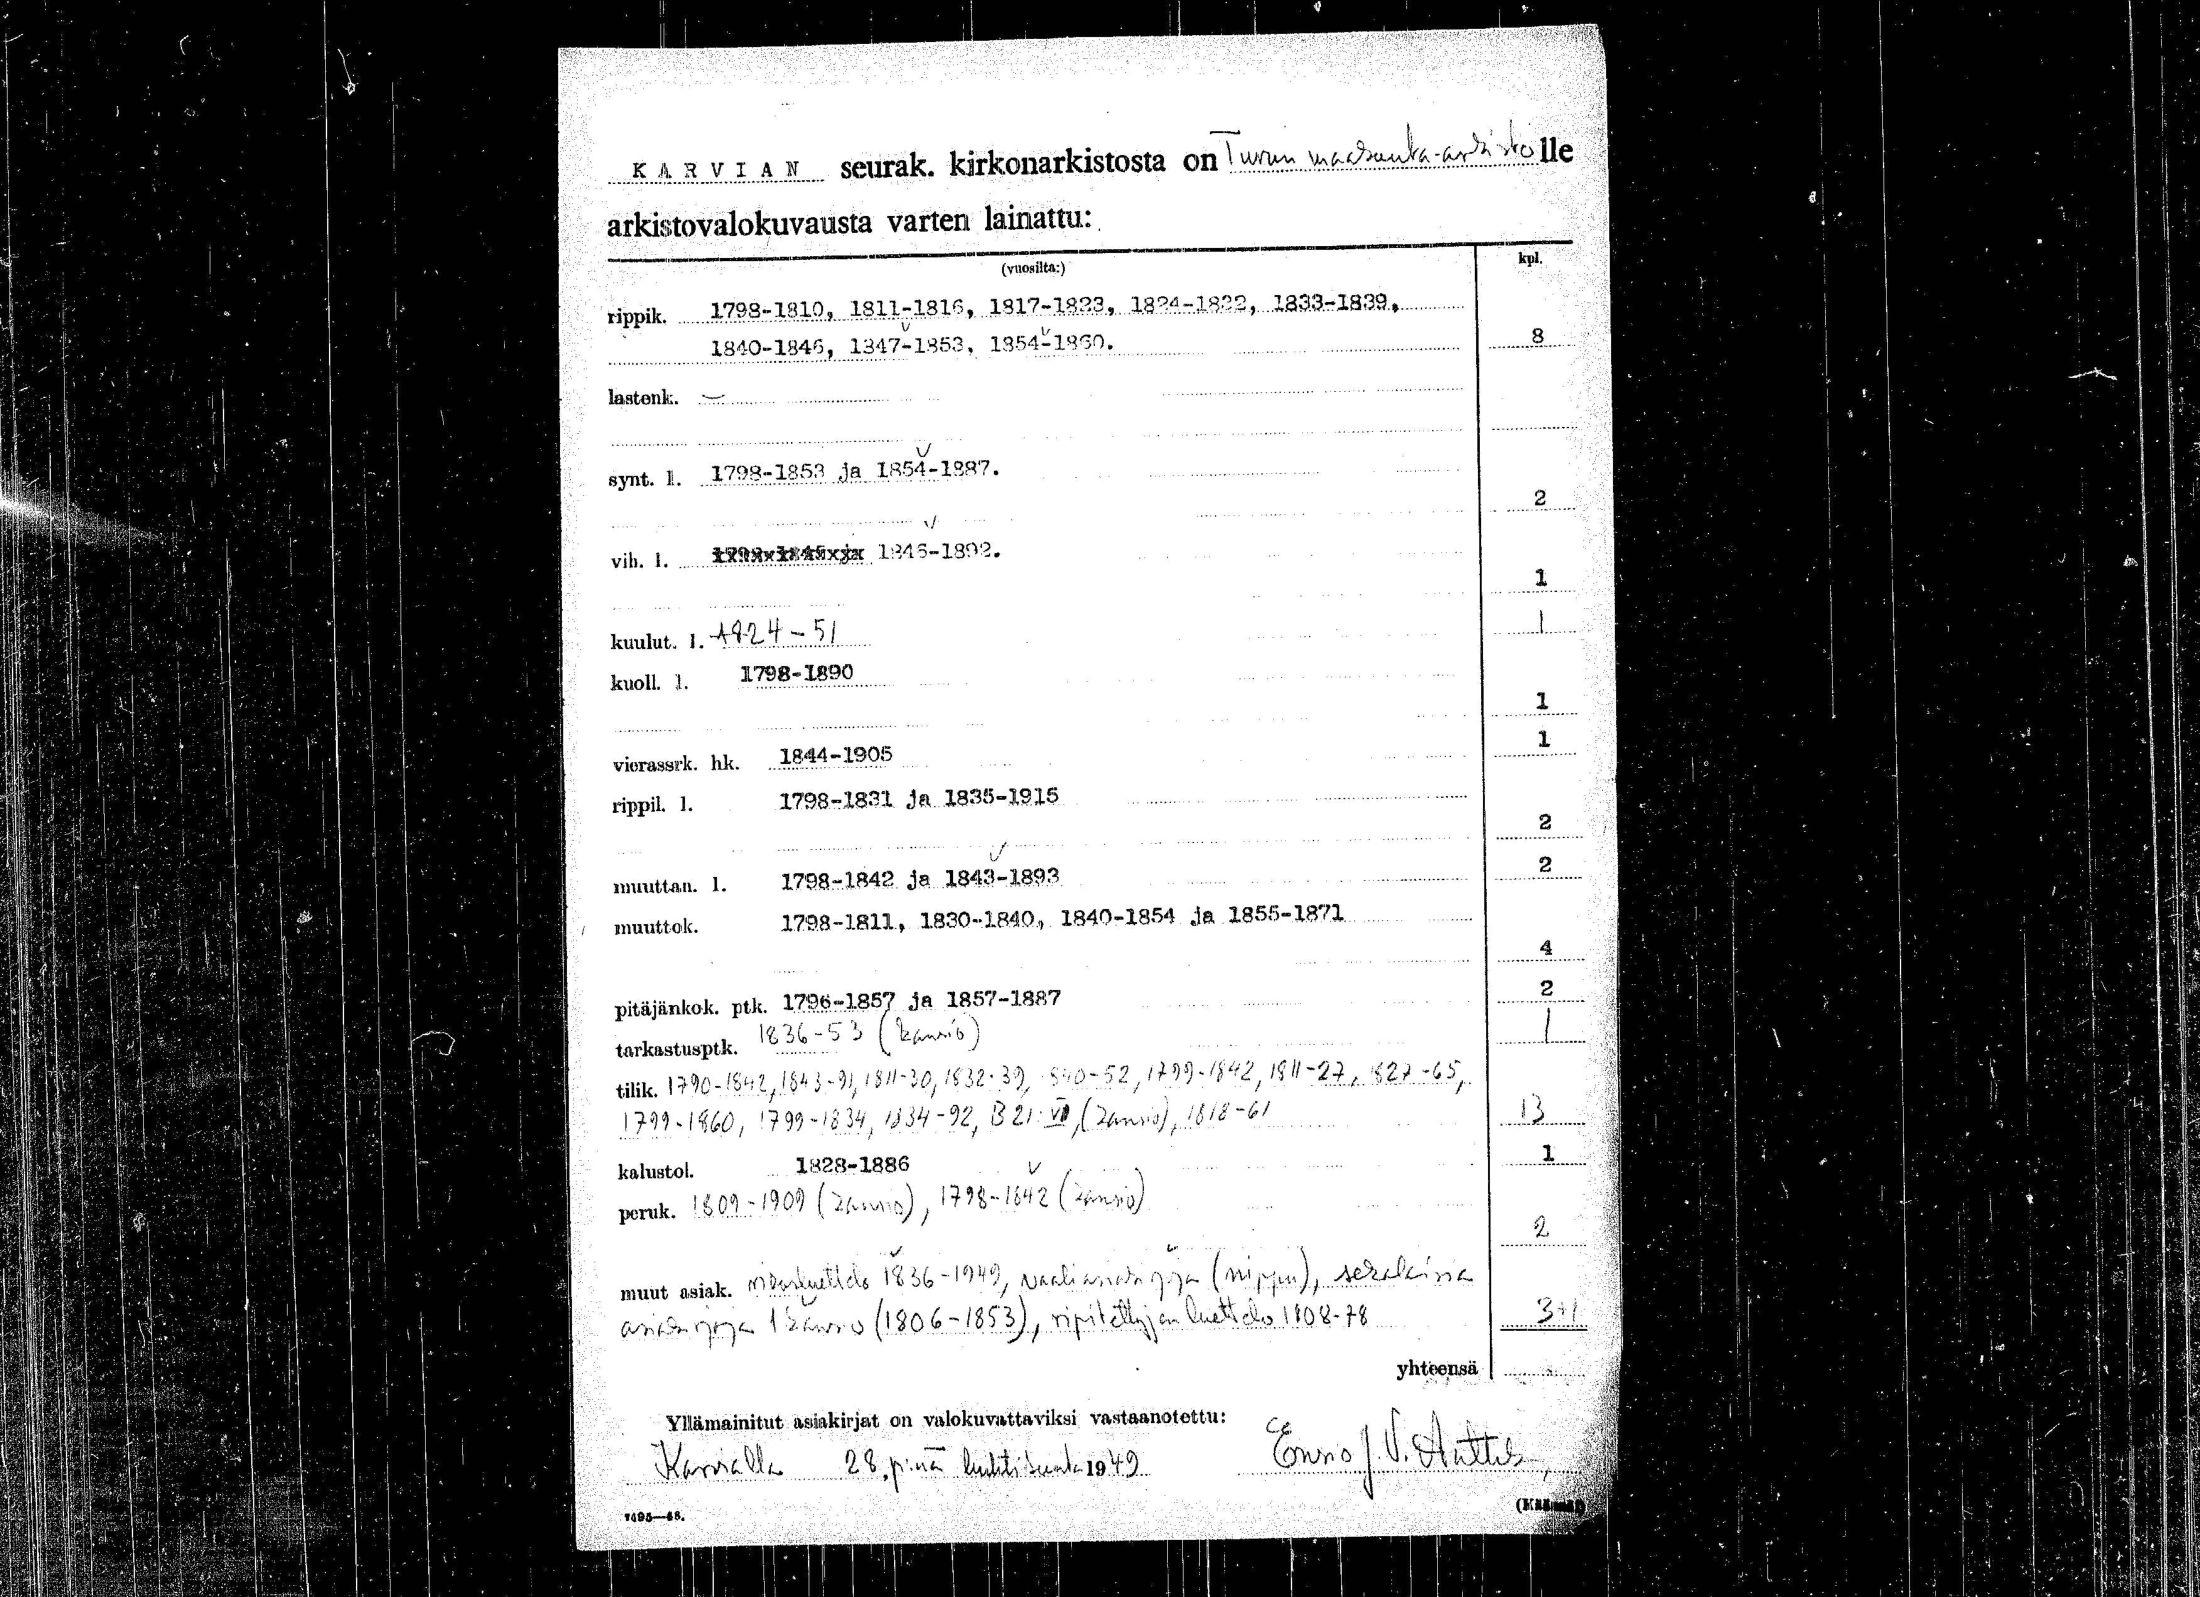 KARVIAN seurak. kirkonarkistosta on Turun maakunta-arkistolle
arkistovalokuvausta varten lainattu:
(vuosilta:) kpl.
rippik. 1798-1810, 1811-1816, 1817-1823, 1824-1832, 1833-1839,
1840-1846, 1847-1853, 1854-1860. 8
lastenk. —
synt. l. 1798-1853 ja 1854-1887.
2
vih. l. 1798-1845 ja 1846-1892.
1
kuulut. l. 1824-51 1
kuoll. l. 1798-1890
1
vierassrk. hk. 1844-1905 1
rippil. l. 1798-1831 ja 1835-1915
2
muuttan. l. 1798-1842 ja 1843-1893 2
muuttok. 1798-1811, 1830-1840, 1840-1854 ja 1855-1871
4
pitäjänkok. ptk. 1796-1857 ja 1857-1887 2
tarkastusptk. 1836-53 (kansio) 1
tilik. 1790-1842, 1843-91, 1811-30, 1832-39, 840-52, 1799-1842, 1811-27, 1827-65,
1799-1860, 1799-1834, 1834-92, B 21: (kansio), 1818-61 13
kalustol. 1828-1886 1
peruk. 1809-1909 (kansio), 1798-1842 (kansio)
2
muut asiak. 1836-1949, vaaliasiakirjoja (nippu), sekalaisia
asiakirjoja 1 kansio (1806-1853), ripitettyjen luettelo 1808-78 3+1
yhteensä
Yllämainitut asiakirjat on valokuvattaviksi vastaanotettu:
Karvialla 28. p:nä huhtikuuta 1949 J. V.
7495—48.